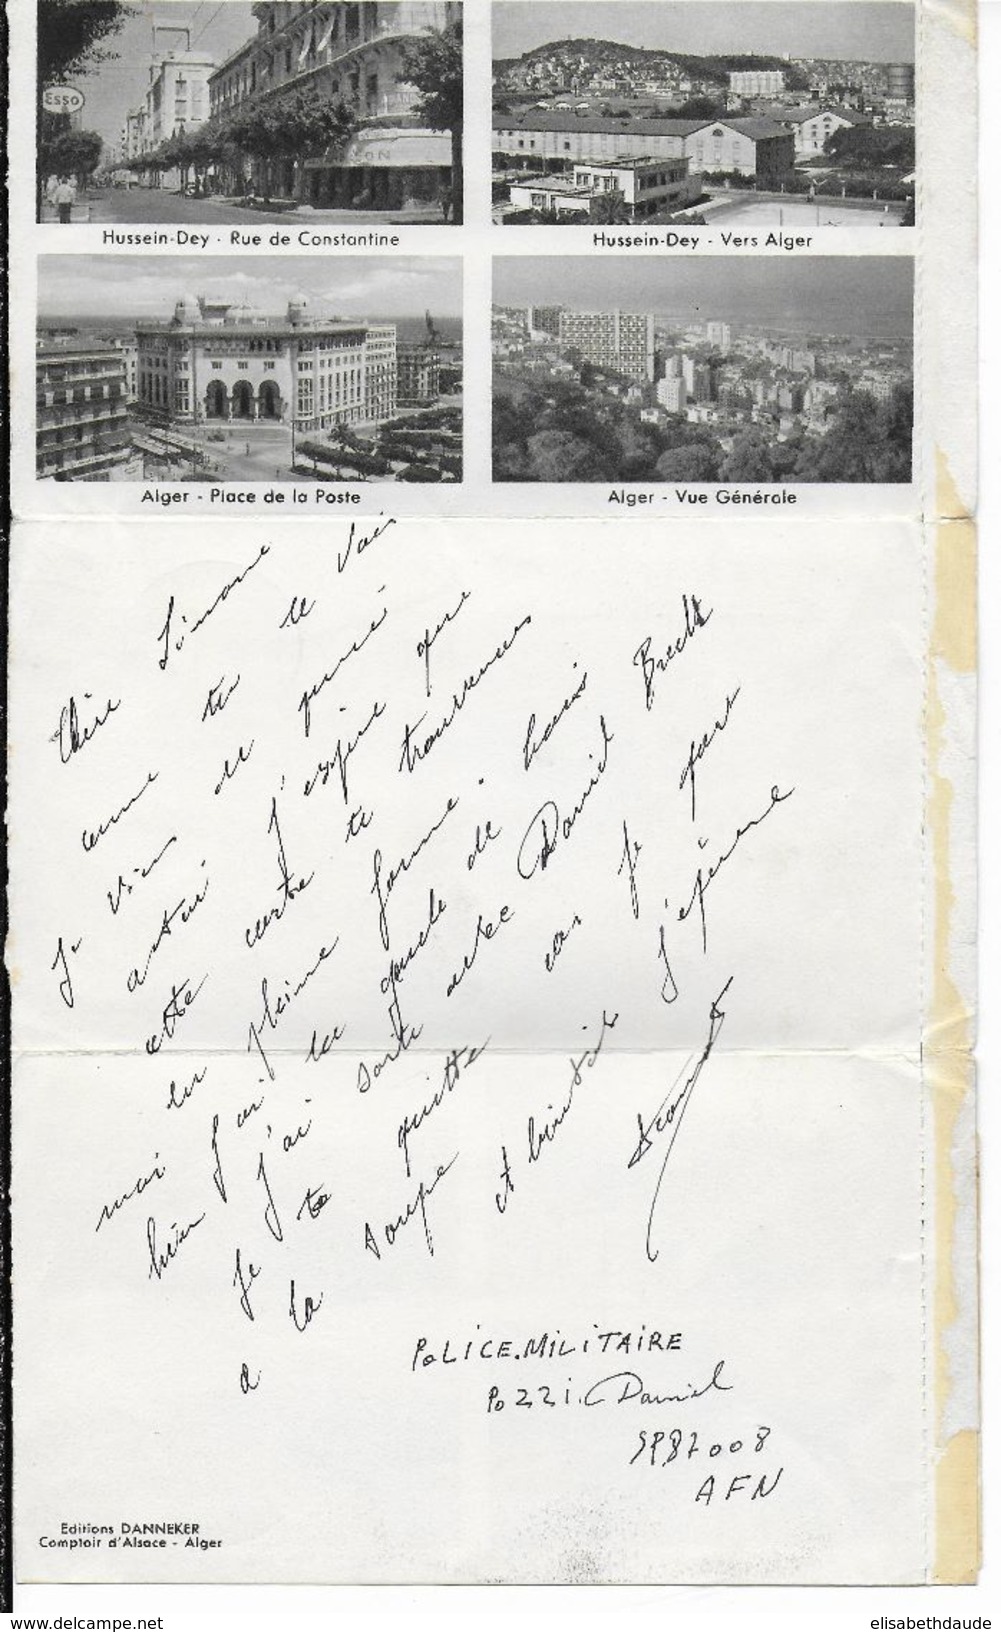 ESSO
Hussein-Dey - Rue de Constantine
Hussein-Dey - Vers Alger
Alger - Place de la Poste
Alger - Vue Générale
Chère Simone
comme tu le vois
Je viens de
j'espère que
cette carte te trouveras
en pleine forme.
moi j'ai la gueule de bois
hier j'ai sorti avec Daniel
Je te quitte car je pars
a la soupe et bientôt
POLICE.MILITAIRE
POZZI. Daniel
SP87008
AFN
Editions DANNEKER
Comptoir d'Alsace - Alger
www.delcampe.net
elisabethdaude